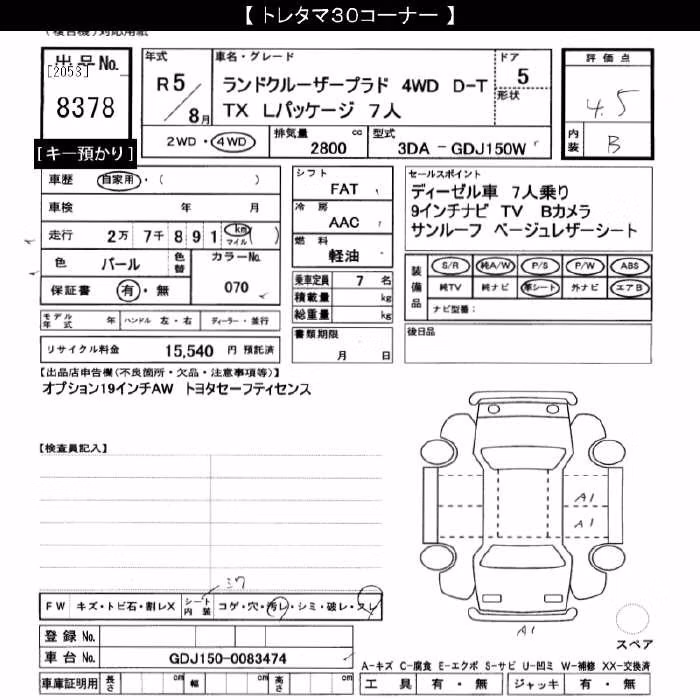 【 トレタマ30コーナー 】
(複合機)対応用紙
出品No.
[2053]
8378
[キー預かり]
年式
R 5 / 8 月
車名・グレード
ランドクルーザープラド 4WD D-T
TX Lパッケージ 7人
ドア
5
形状
2WD・4WD
排気量 cc
2800
型式
3DA - GDJ150W
評価点
4.5
内装
B
車歴 自家用・( )
車検 年 月
走行 2万 7千 8 9 1 km マイル ( )
色 パール 色替
カラーNo.
070
保証書 有・無
モデル年式 年 ハンドル 左・右 ディーラー・並行
リサイクル料金 15,540 円 預託済
シフト
FAT
冷房
AAC
燃料
軽油
乗車定員 7 名
積載量 kg
総重量 kg
書類期限
月 日
セールスポイント
ディーゼル車 7人乗り
9インチナビ TV Bカメラ
サンルーフ ベージュレザーシート
装備品
S/R 純A/W P/S P/W ABS
純TV 純ナビ 革シート 外ナビ エアB
ナビ型番:
後日品
【出品店申告欄(不良箇所・欠品・注意事項等)】
オプション19インチAW トヨタセーフティセンス
【検査員記入】
A1
A1
A1
スペア
ミワ
FW キズ・トビ石・割レX シート内装 コゲ・穴・汚レ・シミ・破レ・スレ
登録 No.
車台 No. GDJ150-0083474
車庫証明用 長さ cm 幅 cm 高さ cm
A-キズ C-腐食 E-エクボ S-サビ U-凹ミ W-補修 XX-交換済
工具 有・無 ジャッキ 有・無